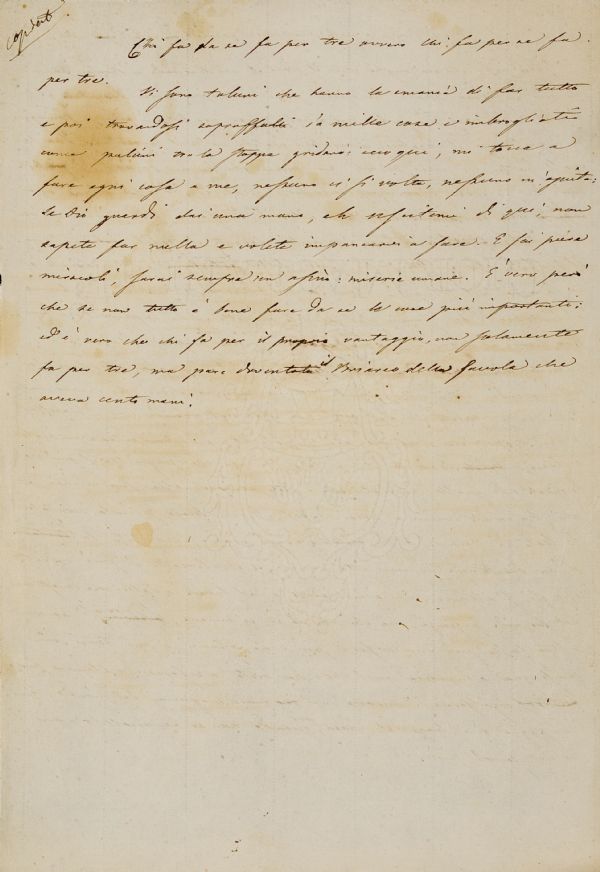 copiato
Chi fa da se fa per tre ovvero chi fa per se fa
per tre.
Vi sono taluni che hanno la smania di far tutto
e poi trovandosi sopraffatti da mille cose e imbrogliati
come pulcini tra la stoppa gridano: eccoqui, mi tocca a
fare ogni cosa a me, nessuno ci si volta, nessuno m'ajuta:
Se Dio guardi dai una mano, eh escitemi di qui, non
sapete far nulla e volete impancarvi a fare. E fai pure
miracoli, sarai sempre un asino: miserie umane. È vero però
che se non tutto è bene fare da se le cose più importanti;
ed è vero che chi fa per il proprio vantaggio, non solamente
fa per tre, ma pare diventato il Briareo della favola che
aveva cento mani.